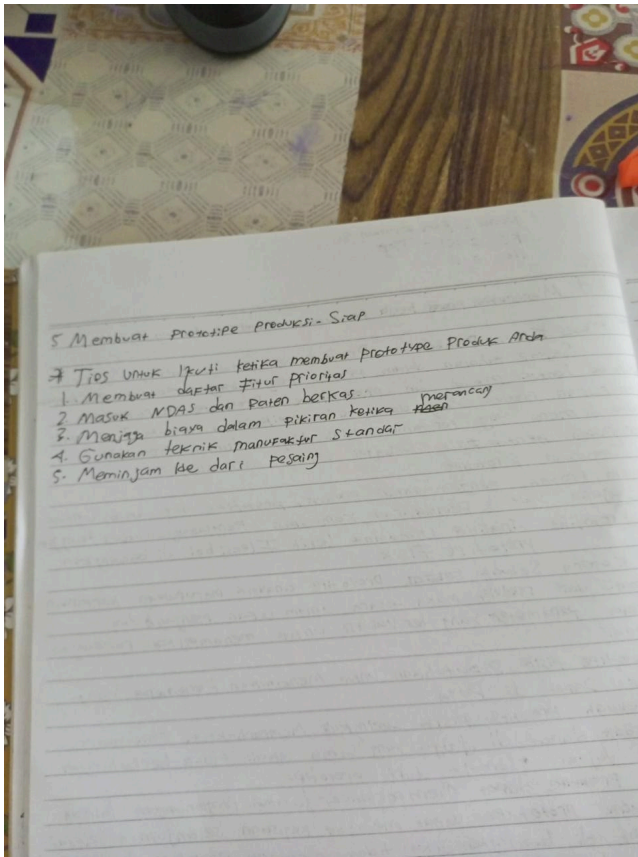 5 Membuat Prototipe Produksi - Siap
* Tips Untuk Ikuti ketika membuat prototype Produk Anda
1. Membuat daftar Fitur Prioritas
2 Masuk NDAS dan Paten berkas
3. Menjaga biaya dalam pikiran ketika merancang
4. Gunakan teknik manufaktur Standar
5. Meminjam Ide dari pesaing